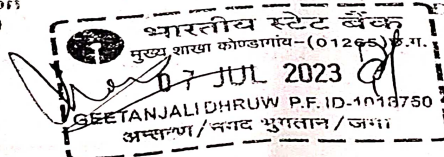 भारतीय स्टेट बैंक
मुख्य शाखा कोण्डागांव-(01265)छ.ग.
07 JUL 2023
GEETANJALI DHRUW P.F. ID-1013750
अन्तरण/नगद भुगतान/जमा